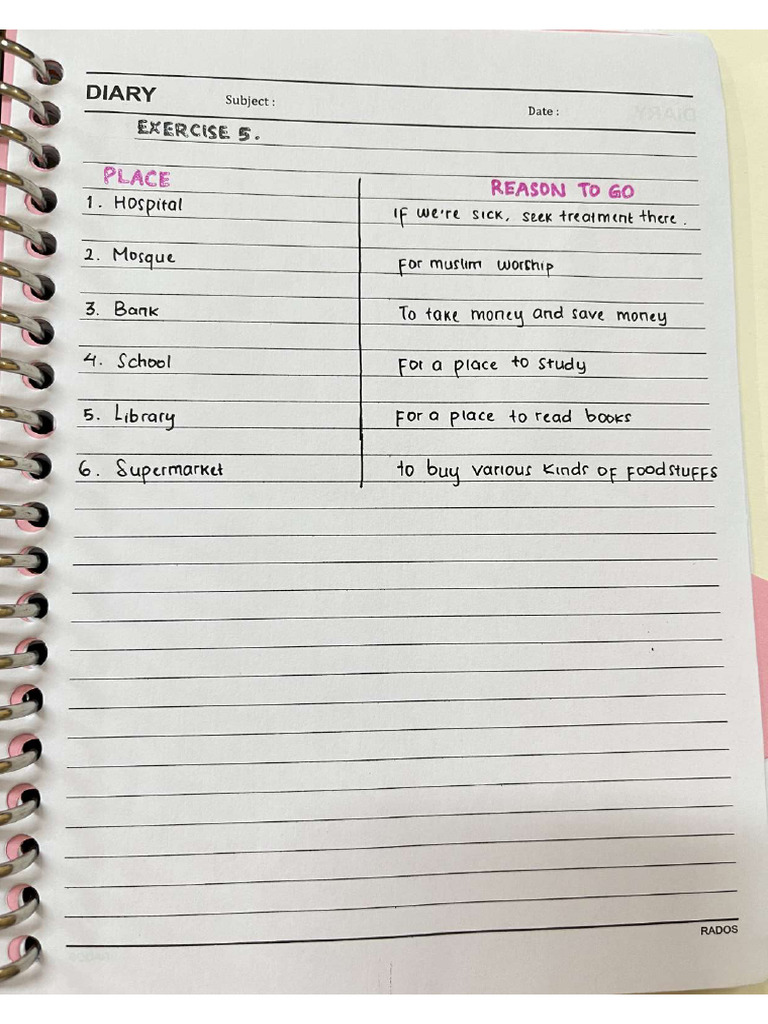 DIARY Subject : Date :
EXERCISE 5.
PLACE REASON TO GO
1. Hospital If we're sick, seek treatment there.
2. Mosque For muslim worship
3. Bank To take money and save money
4. School For a place to study
5. Library For a place to read books
6. Supermarket to buy various kinds of foodstuffs
RADOS